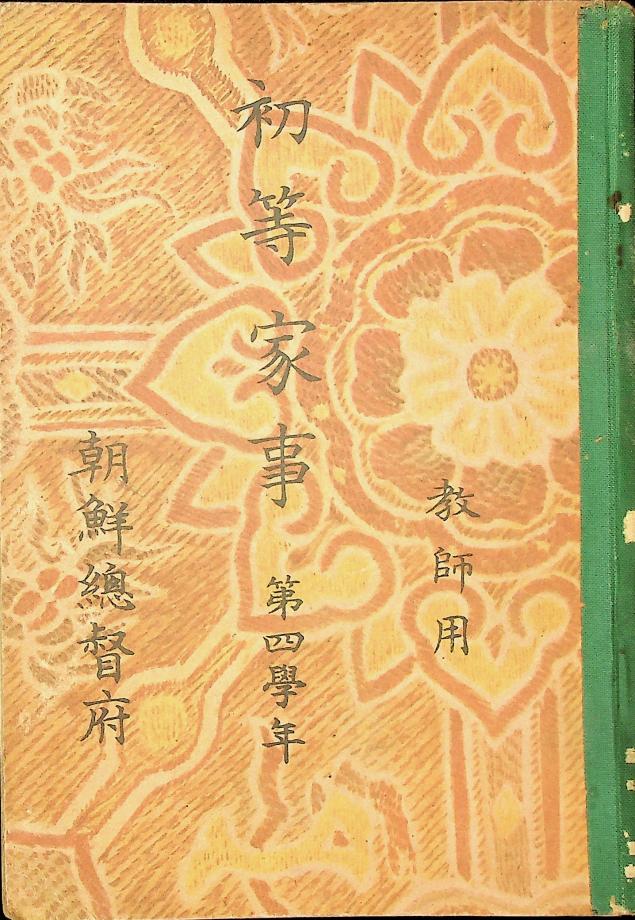 教師用
初等家事 第四學年
朝鮮總督府